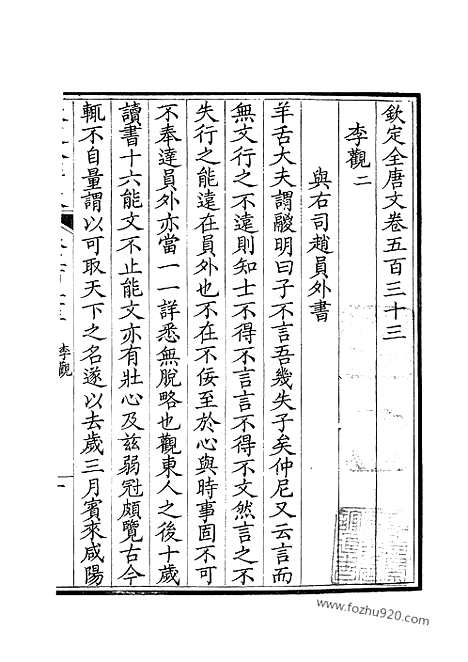 欽定全唐文卷五百三十三
李觀二
與右司趙員外書
羊舌大夫謂鬷明曰子不言吾幾失子矣仲尼又云言而
無文行之不遠則知士不得不言言不得不文然言之不
失行之能遠在員外也不在不佞至於心與時事固不可
不奉達員外亦當一一詳悉無脫略也觀東人之後十歲
讀書十六能文不止能文亦有壯心及茲弱冠頗覽古今
輒不自量謂以可取天下之名遂以去歲三月賓來咸陽
李觀
一
www.fozhu920.com